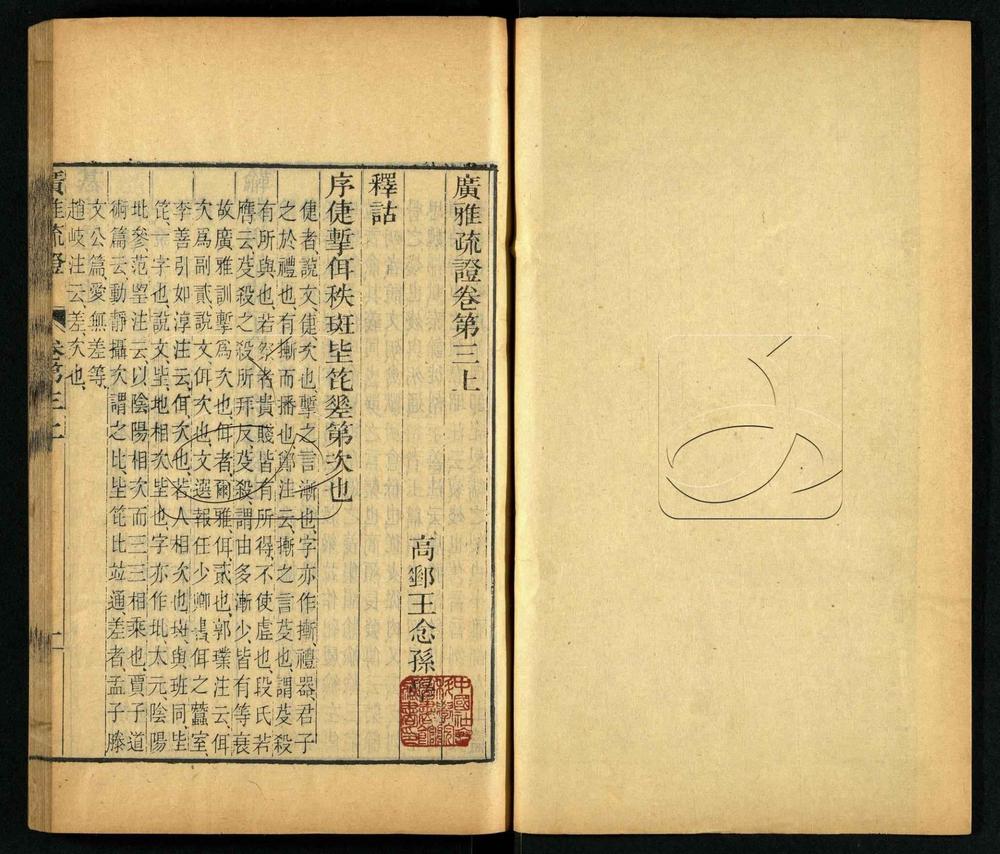 廣雅疏證卷第三上
高郵王念孫學
釋詁
序倢㨻佴秩斑坒笓㐸第次也
倢者說文倢次也㨻之言漸也字亦作摲禮器君子
之於禮也有摲而播也鄭注云摲之言芟也謂芟殺
有所與也若祭者貴賤皆有所得不使虛也段氏若
膺云芟殺之殺所拜反芟殺謂由多漸少皆有等衰
故廣雅訓㨻爲次也佴者爾雅佴貳也郭璞注云佴
次爲副貳說文佴次也文選報任少卿書佴之蠶室
李善引如淳注云佴次也若人相次也斑與班同坒
笓一字也說文坒地相次坒也字亦作玭太元陰陽
玭參范望注云以陰陽相次而三三相乘也賈子道
術篇云動靜攝次謂之比坒笓比竝通差者孟子滕
文公篇愛無差等
趙岐注云差次也
廣雅疏證 卷第三上 一